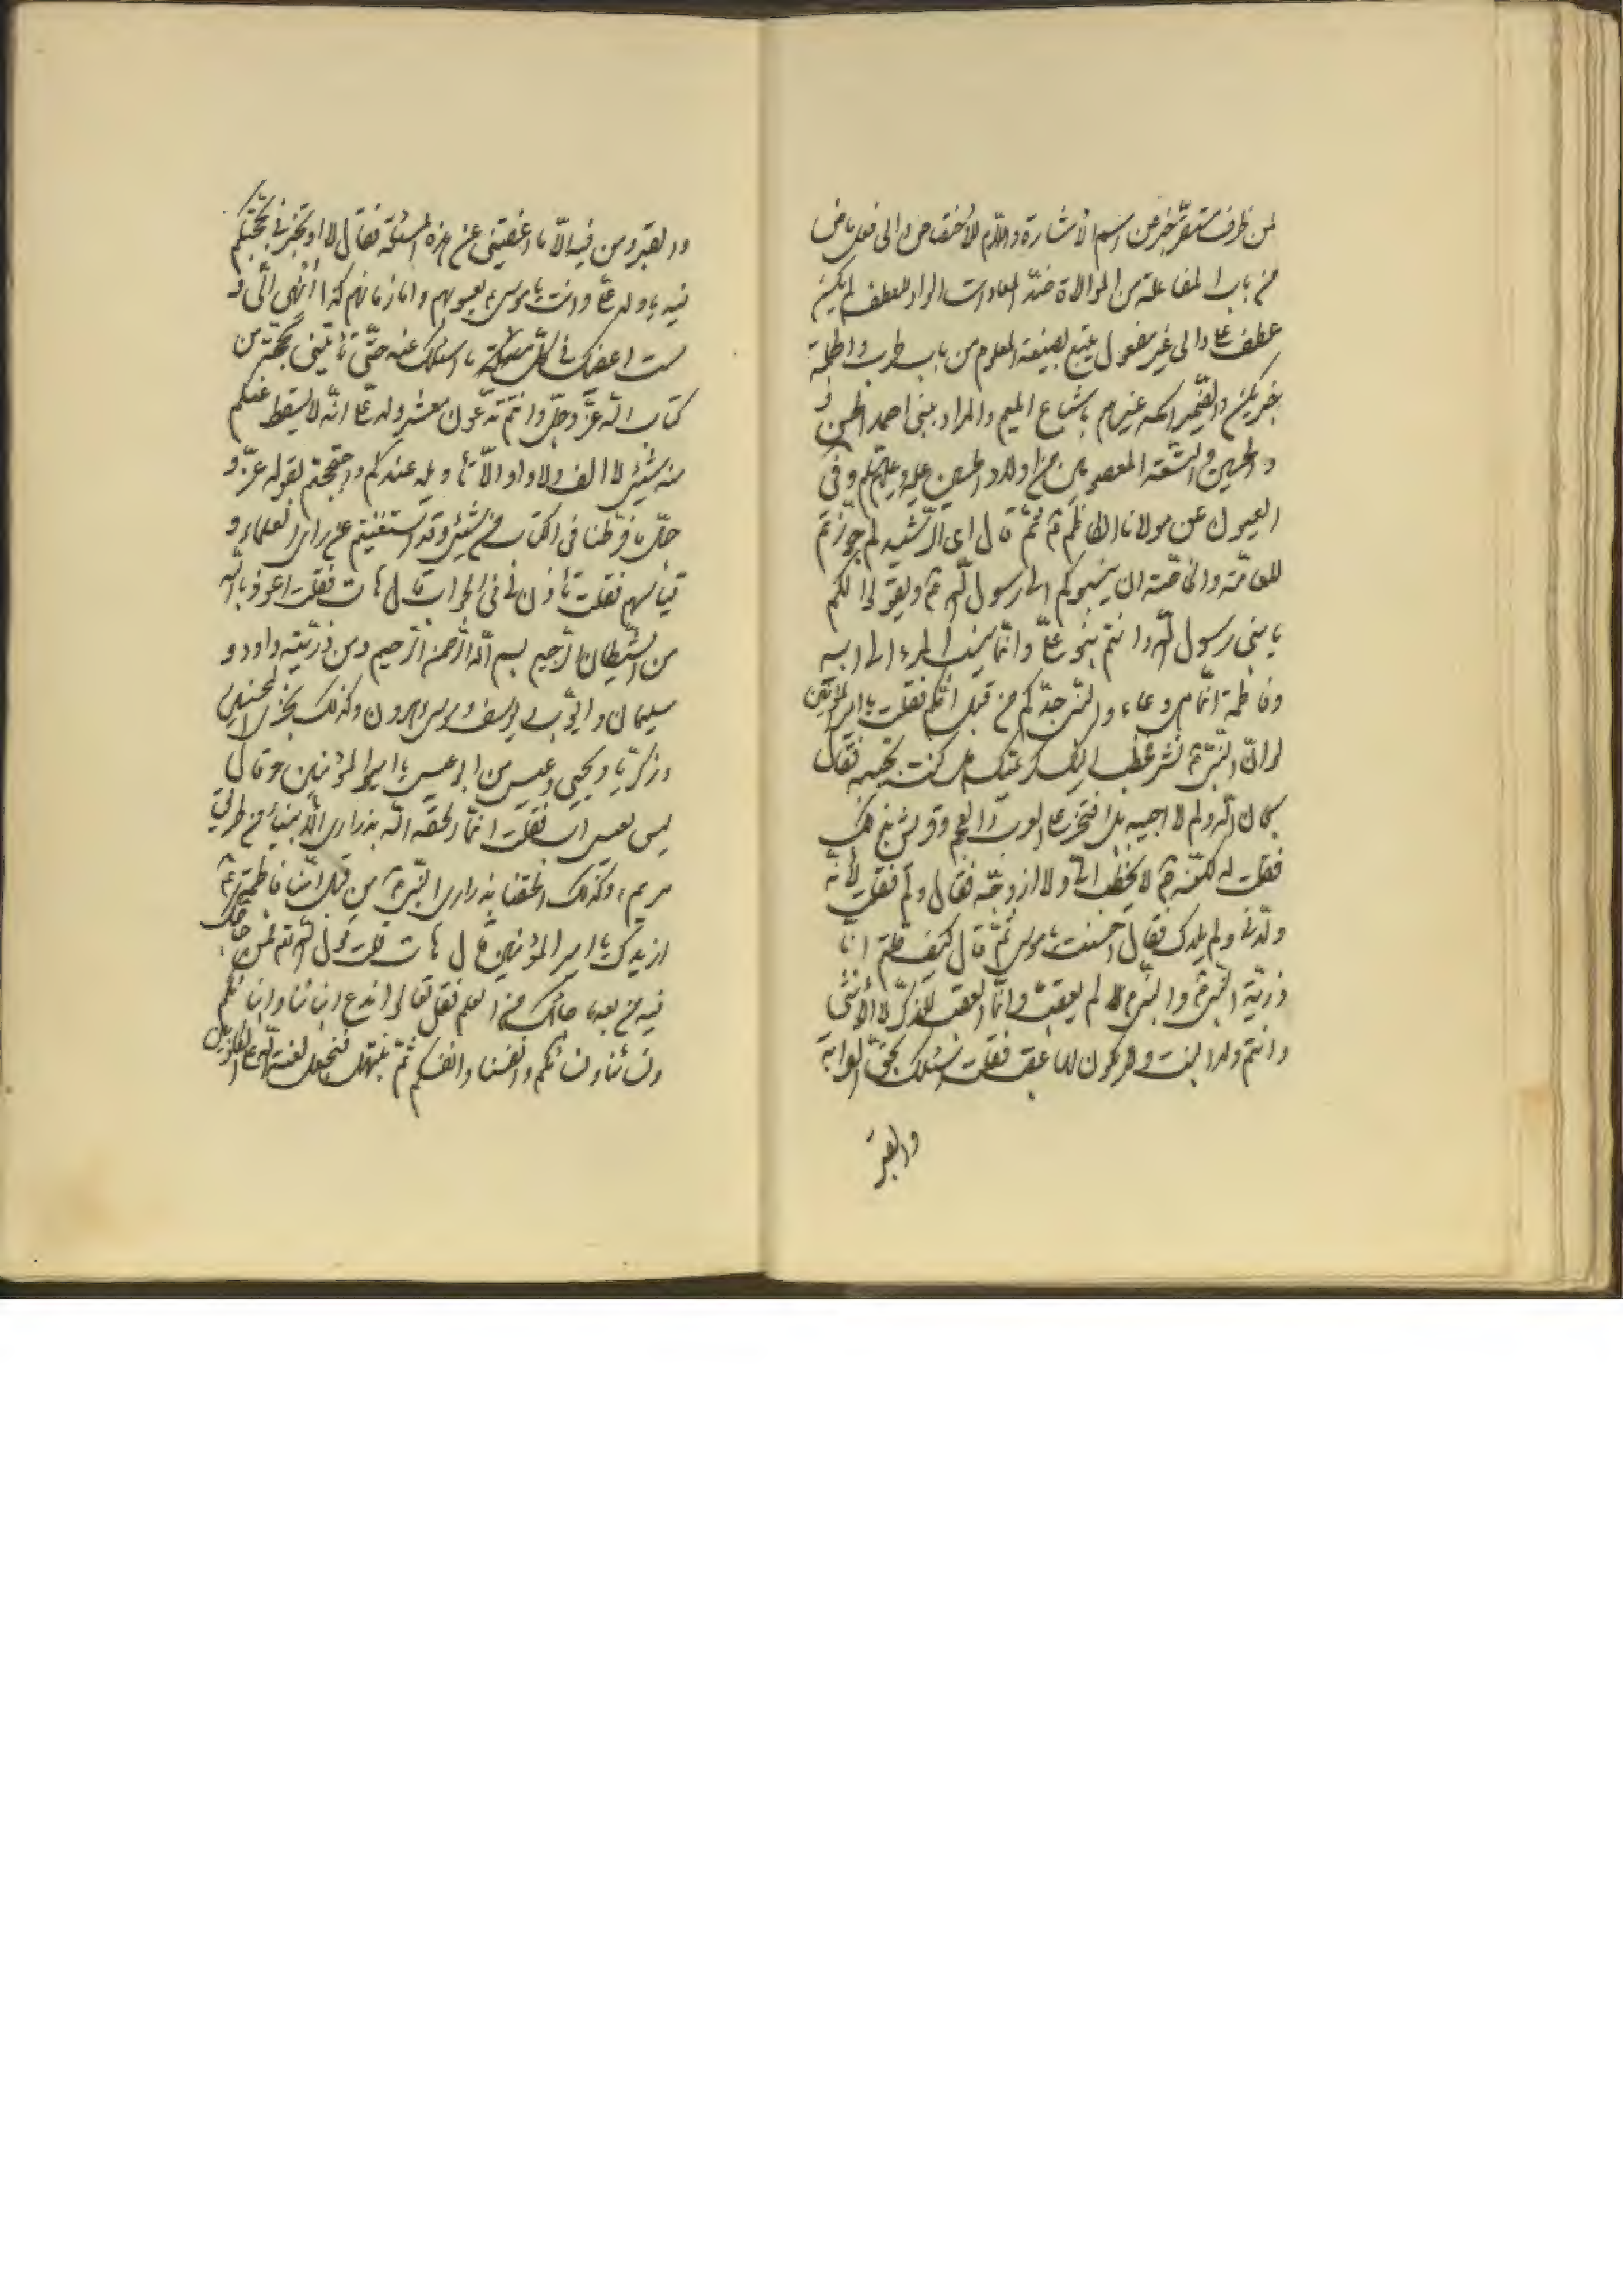 لمن ظرف مستقر خبر عن اسم الأشارة واللام للأختصاص والى فعل ماض
من باب المفاعلة من الموالاة ضدّ المعادات الواو للعطف لم يكن
عطف على والى غير مفعول يتبع بصيغة المعلوم من باب والجملة
خبر يكن والضمير غيرهم باشباع الميم والمراد ببنى احمد الحسن
والحسين والتسعة المعصومين من اولاد الحسين عليه وعليهم وفى
العيون عن مولانا الكاظم ع ثمّ قال اى الرّشيد لم جوّزتم
للعامّة والخاصّة ان ينسبوكم الى رسول اللّه ص ويقولوا لكم
يا بنى رسول اللّه وانتم بنو علىّ وانّما ينسب المرء الى ابيه
وفاطمة انّما هى وعاء والنبى جدّكم من قبل امّكم فقلت يا امير المؤمنين
لو انّ النّبىّ ص نشر فخطب اليك كريمتك هل كنت تجيبه فقال
سبحان اللّه ولم لا اجيبه بل افتخر على العرب والعجم وقريش بذلك
فقلت له لكنّه ص لا يخطب الىّ ولا ازوّجه فقال ولم فقلت لأنّه
ولدنى ولم يلدك فقال احسنت يا موسى ثمّ قال كيف قلتم انّا
ذريّة النّبى ص والنّبى ص لم يعقب وانّما العقب للذكر لا الأنثى
وانتم ولد البنت ولا يكون لها عقب فقلت اسئلك بحقّ القرابة
والقبر
والقبر ومن فيه الّا ما اعفيتنى عن هذه المسئلة فقال لا او تخبرنى بحجّتكم
فيه يا ولد علىّ وانت يا موسى يعسوبهم وامام زمانهم كذا انهى الىّ و
لست اعفيك فى كلّ ما اسئلك عنه حتّى تأتينى بحجّة من
كتاب اللّه عزّ وجلّ وانتم تدّعون معشر ولد علىّ انّه لا يسقط عنكم
منه شيئ لا الف ولا واو الّا تأويله عندكم واحتججتم بقوله عزّ و
جلّ ما فرّطنا فى الكتاب من شيئ وقد استغنيتم عن راى العلماء و
قياسهم فقلت تأذن لى فى الجواب قال هات فقلت اعوذ باللّه
من الشّيطان الرّجيم بسم اللّه الرّحمن الرّحيم ومن ذرّيّته داود و
سليمان وايّوب ويوسف وموسى وهرون وكذلك نجزى المحسنين
وزكريّا ويحيى وعيسى من ابو عيسى يا امير المؤمنين فقال
ليس لعيسى اب فقلت انّما الحقه اللّه بذرارى الأنبياء من طريق
مريم ع وكذلك الحقنا بذرارى النّبىّ ص من قبل امّنا فاطمة ع
ازيدك يا امير المؤمنين قال هات قلت قول اللّه فمن حاجّك
فيه من بعد ما جائك من العلم فقل تعالوا ندع ابنائنا وابنائكم
ونسائنا ونسائكم وانفسنا وانفسكم ثمّ نبتهل فنجعل لعنة اللّه على الكاذبين